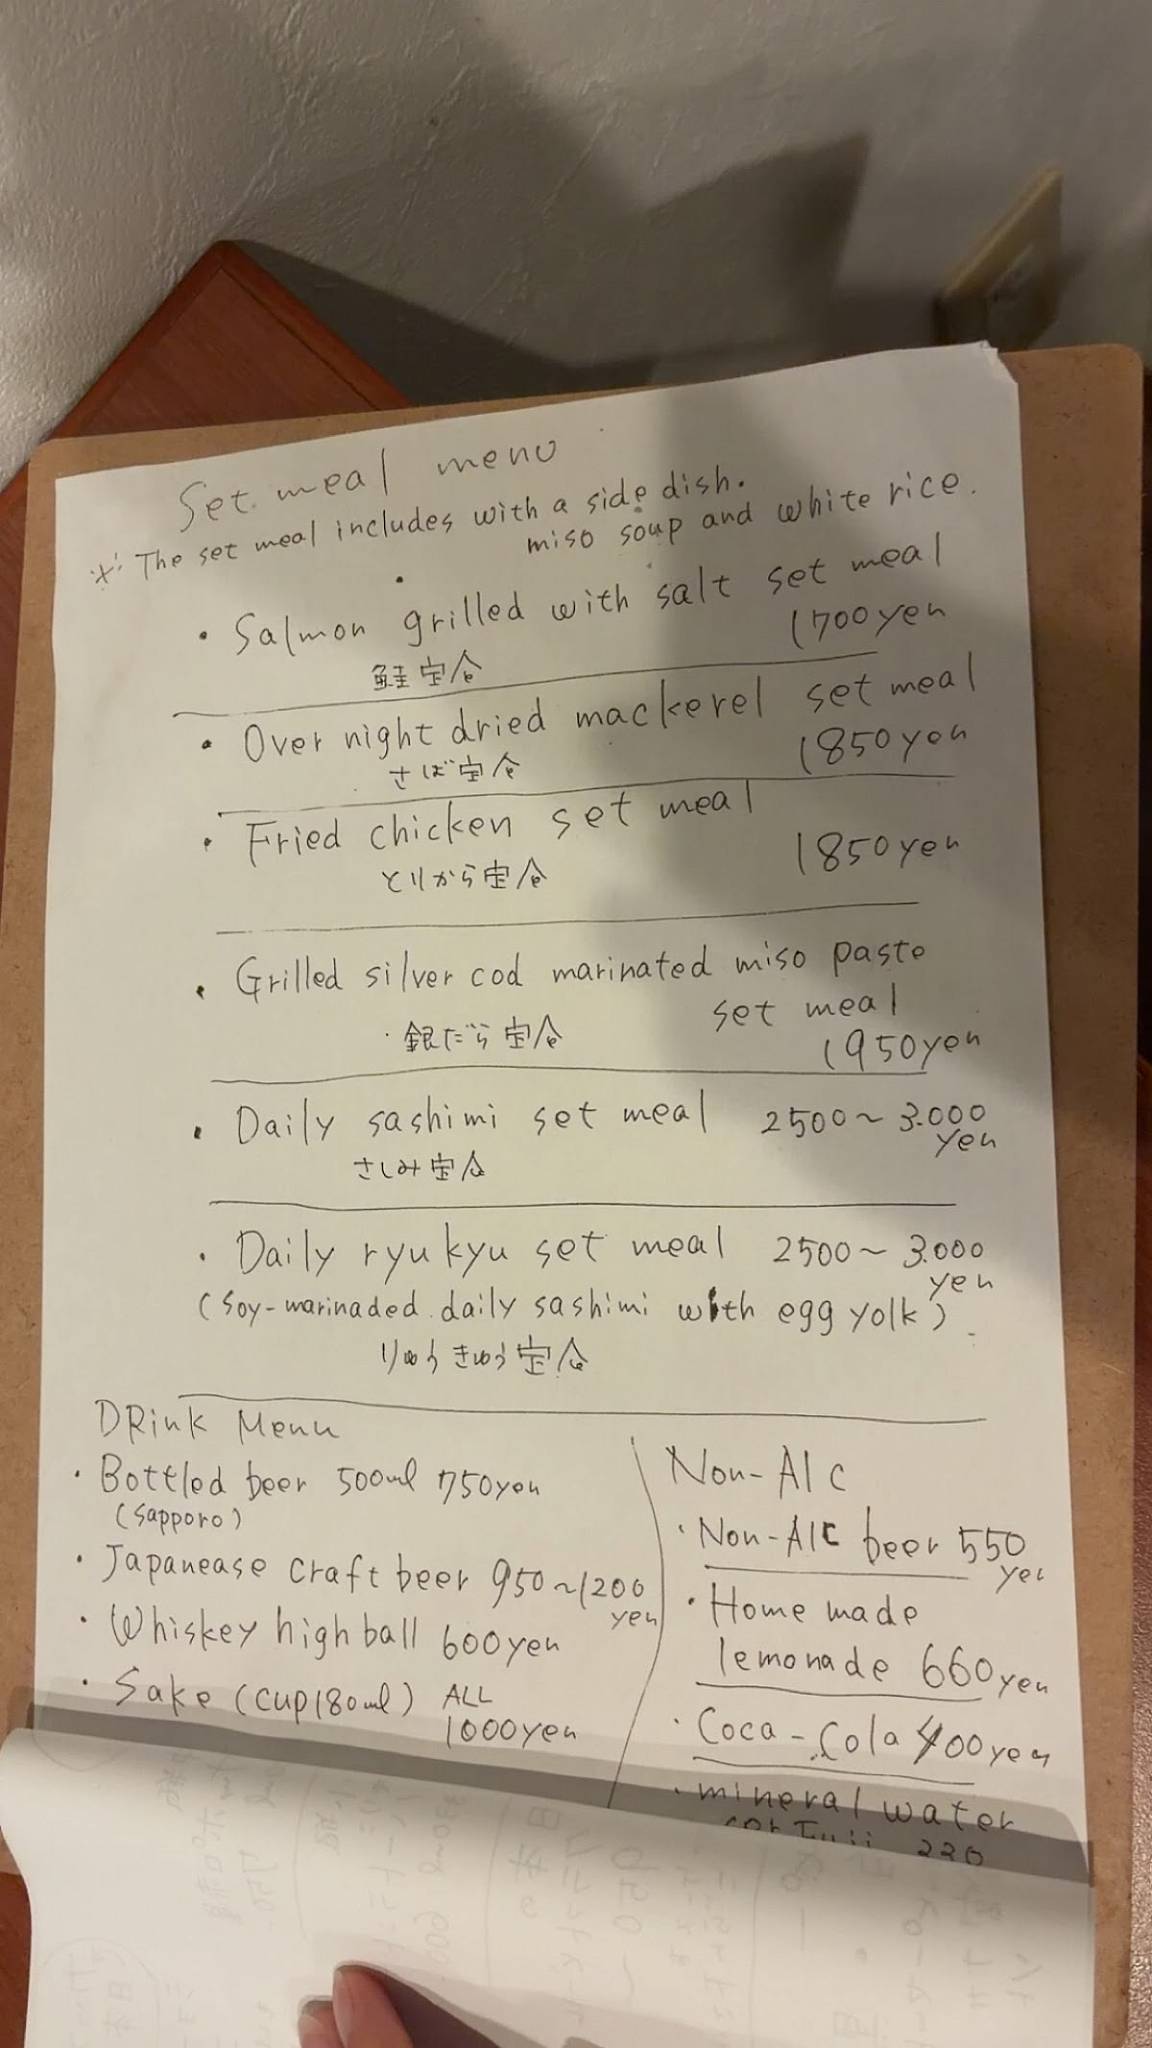 Set meal menu
※ The set meal includes with a side dish.
miso soup and white rice.
・Salmon grilled with salt set meal
1700yen
鮭定食
・Over night dried mackerel set meal
1850yen
さば定食
・Fried chicken set meal
1850yen
とりから定食
・Grilled silver cod marinated miso paste
set meal
銀だら定食
1950yen
・Daily sashimi set meal 2500~3.000
yen
さしみ定食
・Daily ryukyu set meal 2500~3.000
yen
(soy-marinaded daily sashimi with egg yolk)
りゅうきゅう定食
DRink Menu
・Bottled beer 500ml 750yen
(sapporo)
・Japanease craft beer 950~1200
yen
・Whiskey high ball 600yen
・Sake (cup180ml) ALL
1000yen
Non-Alc
・Non-Alc beer 550
yen
・Home made
lemonade 660yen
・Coca-Cola 400yen
・mineral water